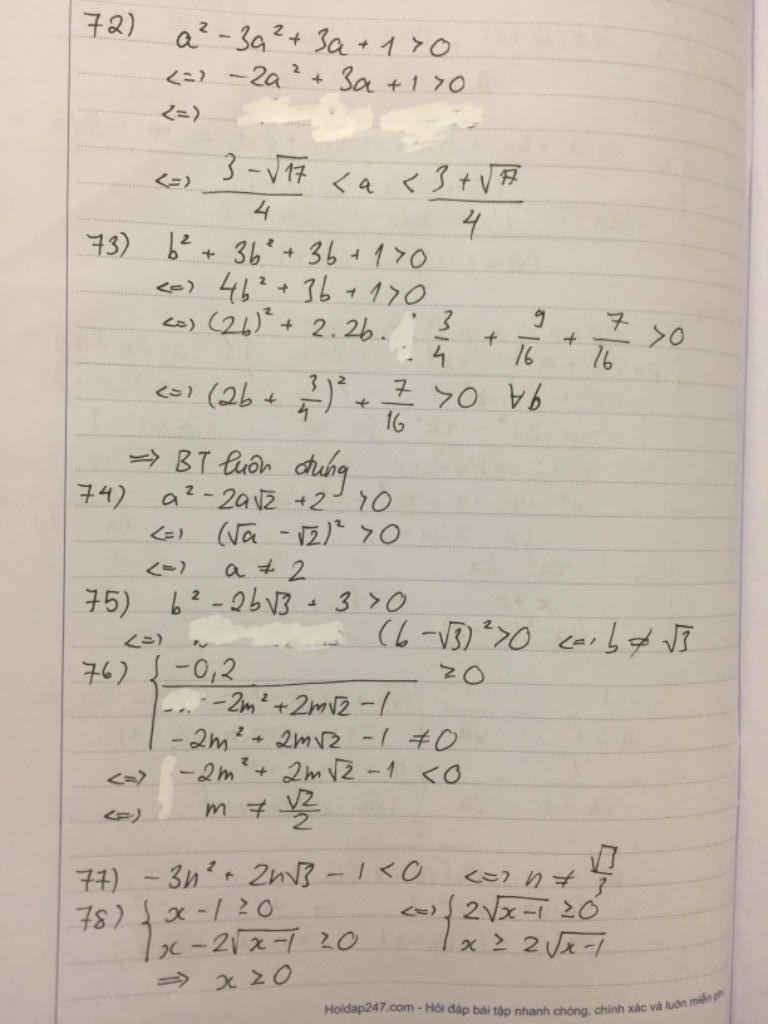 72) a² - 3a² + 3a + 1 > 0
<=> -2a² + 3a + 1 > 0
<=>
<=> (3 - √17)/4 < a < (3 + √17)/4
73) b² + 3b² + 3b + 1 > 0
<=> 4b² + 3b + 1 > 0
<=> (2b)² + 2. 2b. 3/4 + 9/16 + 7/16 > 0
<=> (2b + 3/4)² + 7/16 > 0 ∀b
=> BT luôn đúng
74) a² - 2a√2 + 2 > 0
<=> (√a - √2)² > 0
<=> a ≠ 2
75) b² - 2b√3 + 3 > 0
<=> (b - √3)² > 0 <=> b ≠ √3
76) { -0,2/(-2m² + 2m√2 - 1) ≥ 0
-2m² + 2m√2 - 1 ≠ 0
<=> -2m² + 2m√2 - 1 < 0
<=> m ≠ √2/2
77) -3n² + 2n√3 - 1 < 0 <=> n ≠ √3/3
78) { x - 1 ≥ 0 <=> { 2√(x-1) ≥ 0
x - 2√(x-1) ≥ 0 x ≥ 2√(x-1)
=> x ≥ 0
Hoidap247.com - Hỏi đáp bài tập nhanh chóng, chính xác và luôn miễn phí